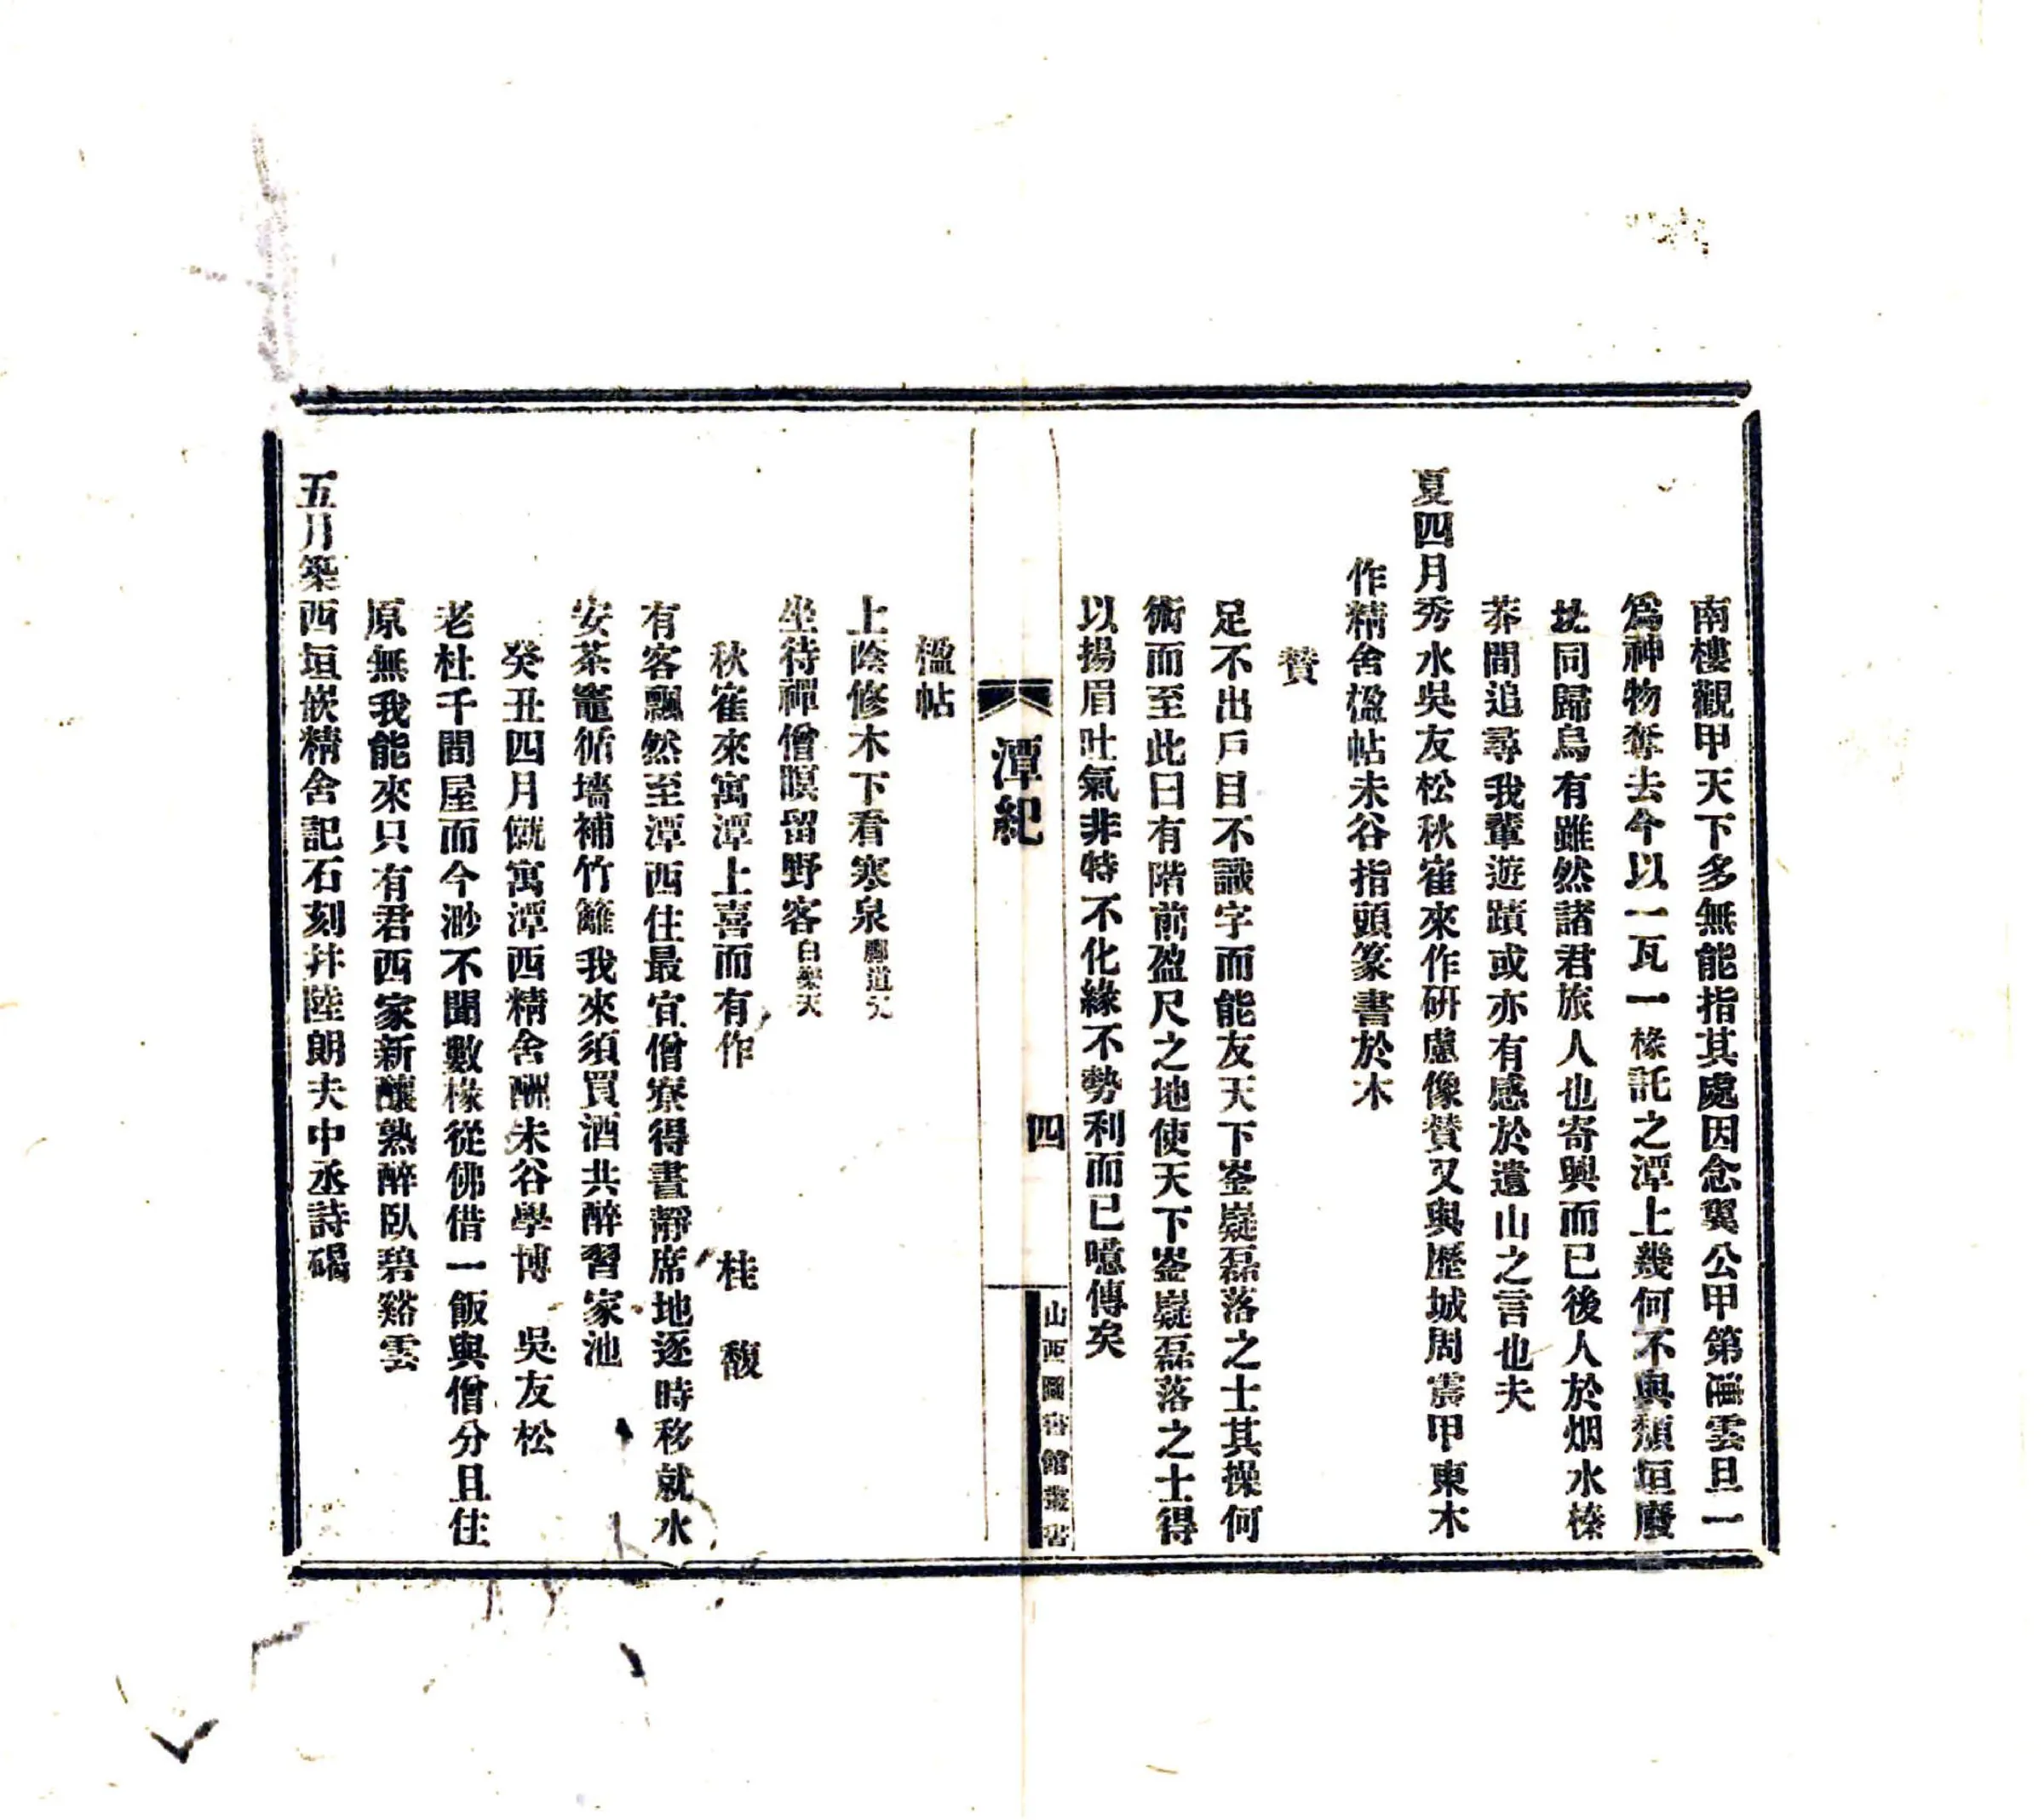 南樓觀甲天下多無能指其處因念翼公甲第連雲旦一
爲神物奪去今以一瓦一椽託之潭上幾何不與頽垣廢
址同歸烏有雖然諸君旅人也寄興而已後人於烟水榛
莽間追尋我輩遊蹟或亦有感於遺山之言也夫
夏四月秀水吳友松秋崔來作研慮像贊又與歷城周震甲東木
作精舍楹帖未谷指頭篆書於木
贊
足不出戶目不識字而能友天下崟嶷磊落之士其操何
術而至此曰有階前盈尺之地使天下崟嶷磊落之士得
以揚眉吐氣非特不化緣不勢利而已噫傳矣
潭紀
四
山西圖書館叢書
楹帖
上陰修木下看寒泉酈道元
坐待禪僧暝留野客白樂天
秋崔來寓潭上喜而有作 桂馥
有客飄然至潭西住最宜僧寮得晝靜席地逐時移就水
安茶竈循墻補竹籬我來須買酒共醉習家池
癸丑四月僦寓潭西精舍酬未谷學博 吳友松
老杜千間屋而今渺不聞數椽從佛借一飯與僧分且住
原無我能來只有君西家新釀熟醉臥碧谿雲
五月築西垣嵌精舍記石刻幷陸朗夫中丞詩碣